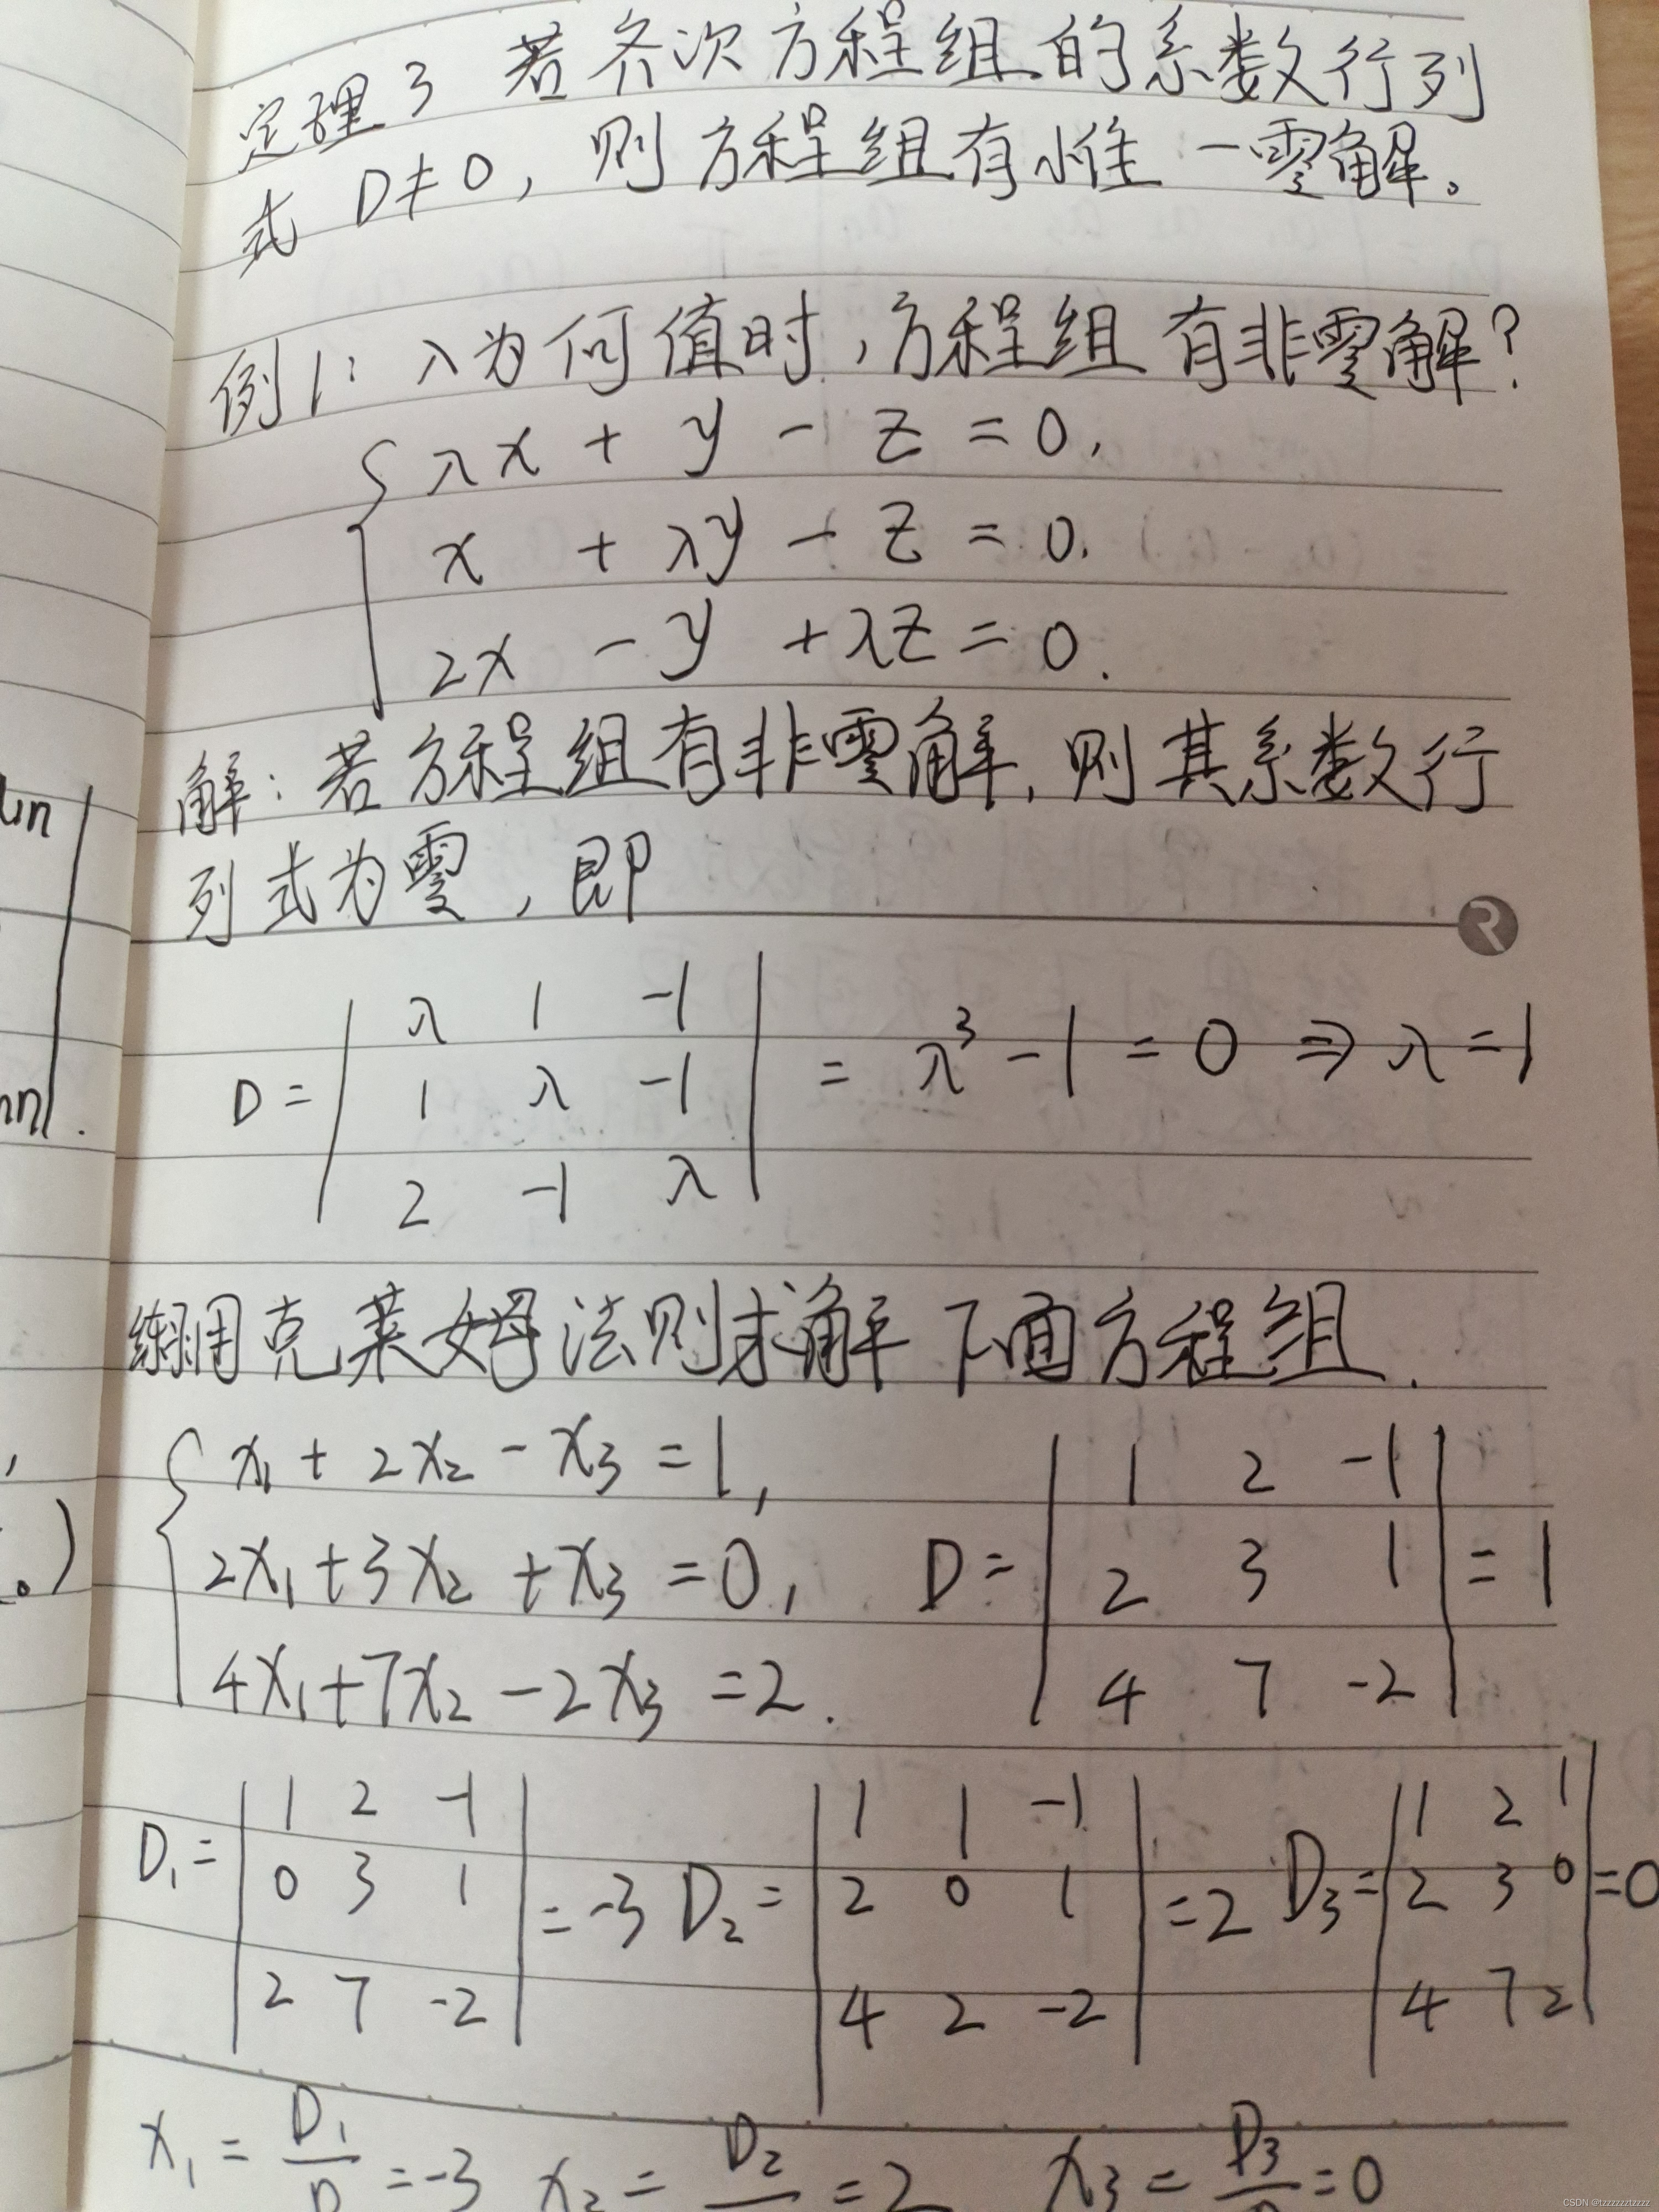 定理3 若齐次方程组的系数行列
式 D≠0, 则方程组有惟一零解。
例1: λ为何值时,方程组有非零解?
λx + y - z = 0,
x + λy - z = 0.
2x - y + λz = 0.
解:若方程组有非零解,则其系数行
列式为零,即
un
D = | λ 1 -1 | = λ³ - 1 = 0 ⇒ λ = 1
1 λ -1
2 -1 λ
nn.
练习用克莱姆法则求解下面方程组.
x₁ + 2x₂ - x₃ = 1,
2x₁ + 3x₂ + x₃ = 0,
4x₁ + 7x₂ - 2x₃ = 2.
D = | 1 2 -1 |
2 3 1 = 1
4 7 -2
。)
D₁ = | 1 2 -1 |
0 3 1 = -3
2 7 -2
D₂ = | 1 1 -1 |
2 0 1 = 2
4 2 -2
D₃ = | 1 2 1 |
2 3 0 = 0
4 7 2
x₁ = D₁/D = -3 x₂ = D₂/ = 2 x₃ = D₃/D = 0
CSDN @tzzzzzztzzzz